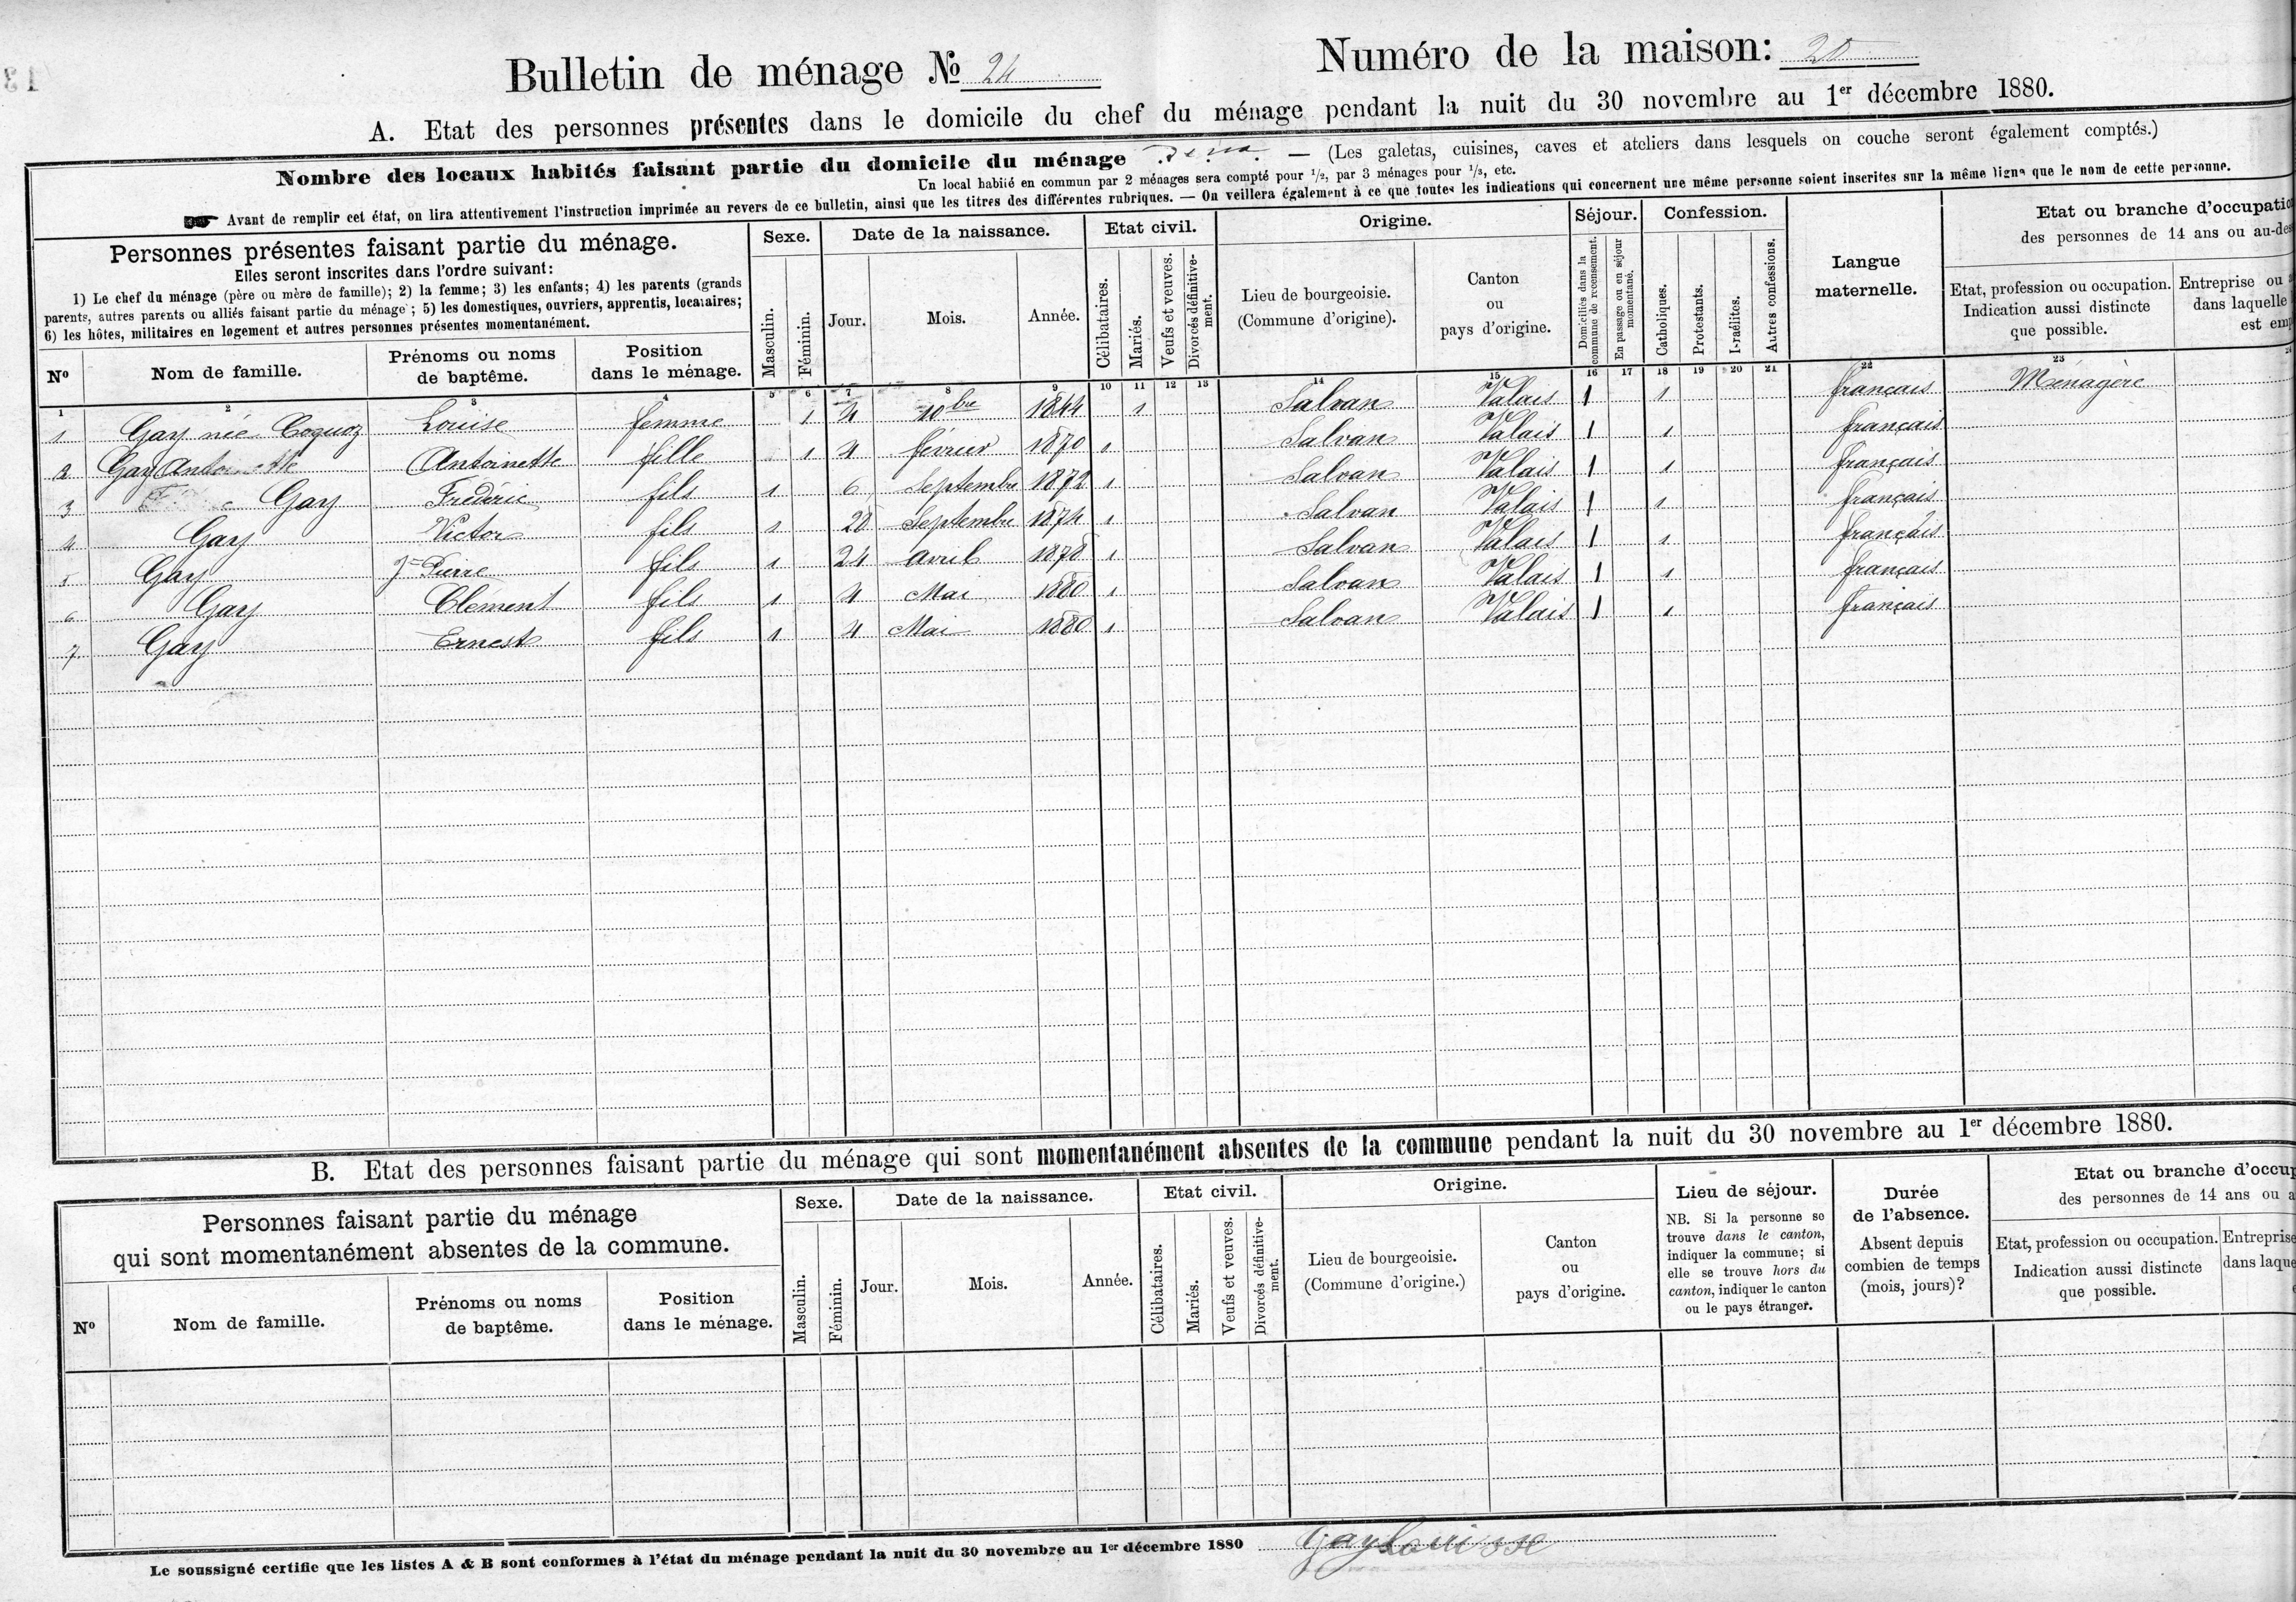 Bulletin de ménage No 24
Numéro de la maison: 20
A. Etat des personnes présentes dans le domicile du chef du ménage pendant la nuit du 30 novembre au 1er décembre 1880.
Nombre des locaux habités faisant partie du domicile du ménage — (Les galetas, cuisines, caves et ateliers dans lesquels on couche seront également comptés.)
Un local habité en commun par 2 ménages sera compté pour 1/2, par 3 ménages pour 1/3, etc.
Avant de remplir cet état, on lira attentivement l'instruction imprimée au revers de ce bulletin, ainsi que les titres des différentes rubriques. — On veillera également à ce que toutes les indications qui concernent une même personne soient inscrites sur la même ligne que le nom de cette personne.
Personnes présentes faisant partie du ménage.
Elles seront inscrites dans l'ordre suivant:
1) Le chef du ménage (père ou mère de famille); 2) la femme; 3) les enfants; 4) les parents (grands
parents, autres parents ou alliés faisant partie du ménage; 5) les domestiques, ouvriers, apprentis, locataires;
6) les hôtes, militaires en logement et autres personnes présentes momentanément.
No
Nom de famille.
Prénoms ou noms
de baptême.
Position
dans le ménage.
Sexe.
Masculin.
Féminin.
Date de la naissance.
Jour.
Mois.
Année.
Etat civil.
Célibataires.
Mariés.
Veufs et veuves.
Divorcés définitive-
ment.
Origine.
Lieu de bourgeoisie.
(Commune d'origine).
Canton
ou
pays d'origine.
Séjour.
Domiciliés dans la
commune de recensement.
En passage ou en séjour
momentané.
Confession.
Catholiques.
Protestants.
Israélites.
Autres confessions.
Langue
maternelle.
Etat ou branche d'occupatio
des personnes de 14 ans ou au-des
Etat, profession ou occupation.
Indication aussi distincte
que possible.
Entreprise ou
dans laquelle
est emp
1 2 3 4 5 6 7 8 9 10 11 12 13 14 15 16 17 18 19 20 21 22 23
1 Gay née Coquoz Louise femme 1 4 10bre 1844 1 Salvan Valais 1 1 français Ménagère
2 Gay Antoinette Antoinette fille 1 4 février 1870 1 Salvan Valais 1 1 français
3 Gay Frédéric fils 1 6 Septembre 1872 1 Salvan Valais 1 1 français
4 Gay Victor fils 1 28 Septembre 1874 1 Salvan Valais 1 1 français
5 Gay Jn Pierre fils 1 24 avril 1878 1 Salvan Valais 1 1 français
6 Gay Clément fils 1 4 Mai 1880 1 Salvan Valais 1 1 français
7 Gay Ernest fils 1 4 Mai 1880 1 Salvan Valais 1 1 français
B. Etat des personnes faisant partie du ménage qui sont momentanément absentes de la commune pendant la nuit du 30 novembre au 1er décembre 1880.
Personnes faisant partie du ménage
qui sont momentanément absentes de la commune.
No
Nom de famille.
Prénoms ou noms
de baptême.
Position
dans le ménage.
Sexe.
Masculin.
Féminin.
Date de la naissance.
Jour.
Mois.
Année.
Etat civil.
Célibataires.
Mariés.
Veufs et veuves.
Divorcés définitive-
ment.
Origine.
Lieu de bourgeoisie.
(Commune d'origine.)
Canton
ou
pays d'origine.
Lieu de séjour.
NB. Si la personne se
trouve dans le canton,
indiquer la commune; si
elle se trouve hors du
canton, indiquer le canton
ou le pays étranger.
Durée
de l'absence.
Absent depuis
combien de temps
(mois, jours)?
Etat ou branche d'occup
des personnes de 14 ans ou a
Etat, profession ou occupation.
Indication aussi distincte
que possible.
Entreprise
dans laque
Le soussigné certifie que les listes A & B sont conformes à l'état du ménage pendant la nuit du 30 novembre au 1er décembre 1880 Gay Louisse